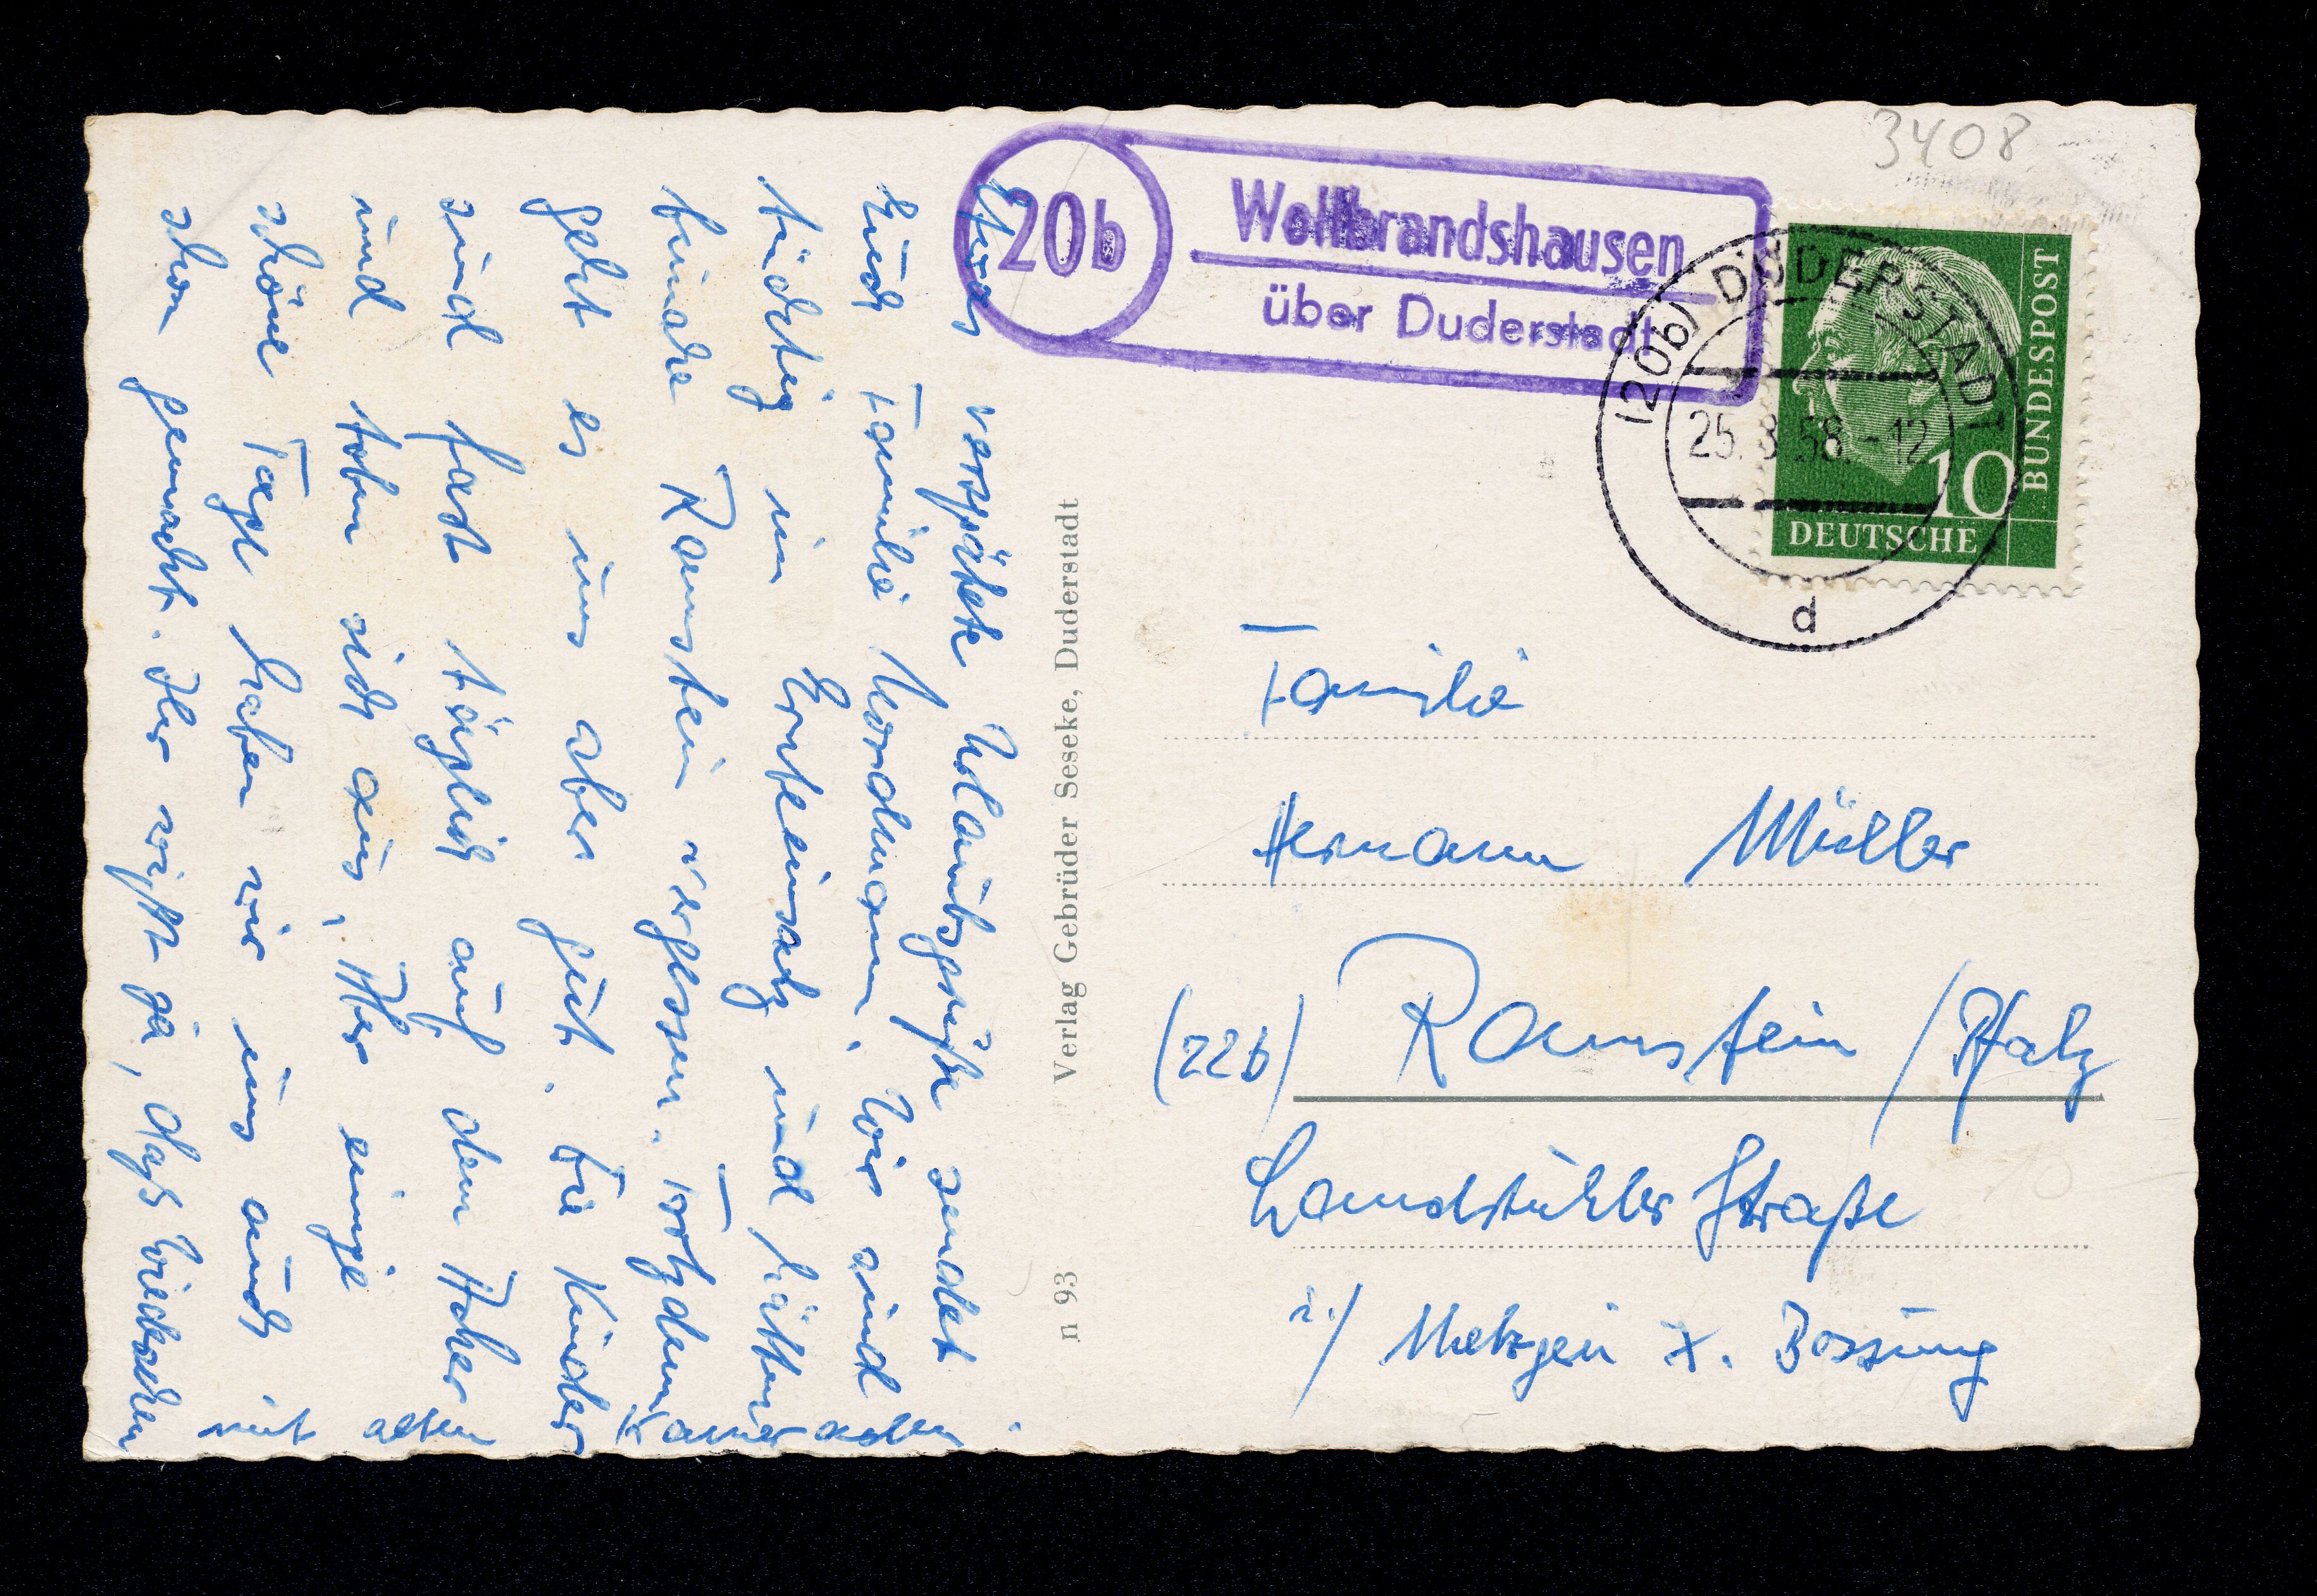 Etwas verspätete Urlaubsgrüße sendet
Euch Familie Nordmann. Wir sind
tüchtig im Ernteeinsatz und hätten
beinahe Ramstein vergessen. Trotzdem
geht es uns aber gut. Die Kinder
sind fast täglich auf dem Acker
und toben sich aus. Aber einige
schöne Tage haben wir uns auch
schon gemacht. Ihr wißt ja, daß Wiedersehen
mit alten Kameraden.
Verlag Gebrüder Seseke, Duderstadt
n 93
20b
Wollbrandshausen
über Duderstadt
3408
(20b) DUDERSTADT
25. 8. 58. -12
d
10
DEUTSCHE
BUNDESPOST
Familie
Hermann Müller
(22b) Ramstein / Pfalz
Landstuhler Straße
Metzgerei X. Bossung